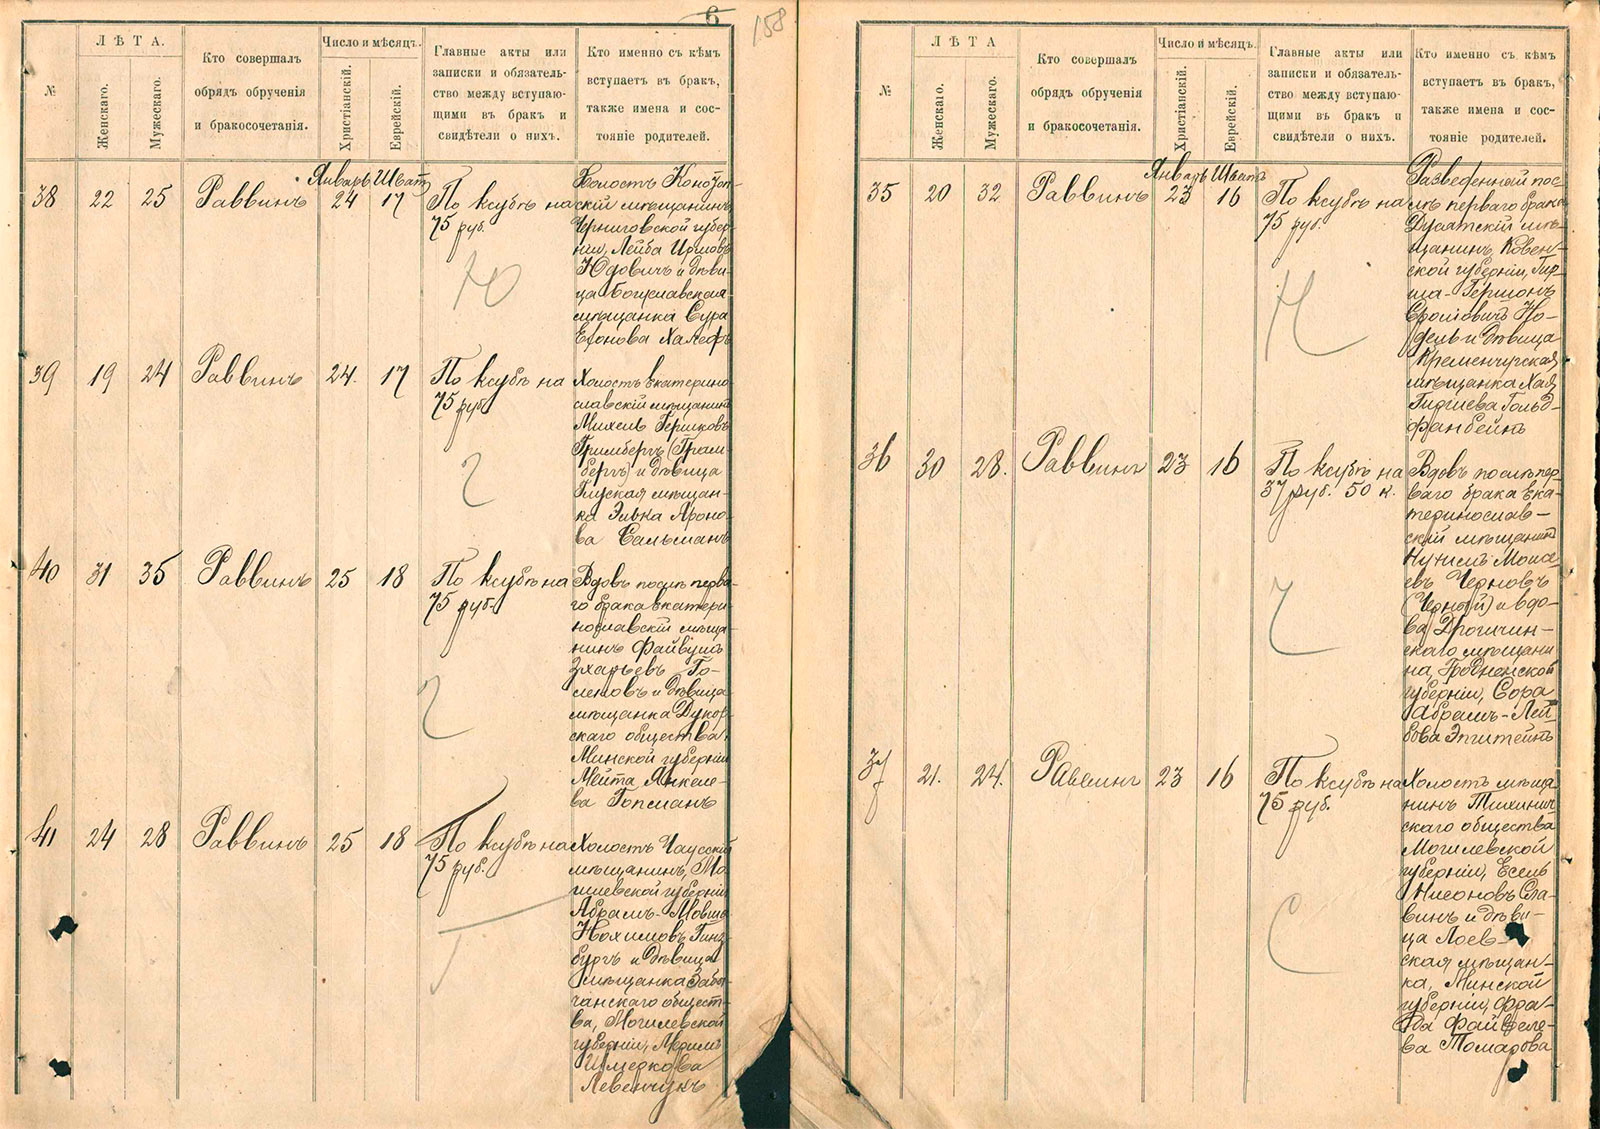 6
158
№
ЛѢТА.
Женскаго.
Мужескаго.
Кто совершалъ
обрядъ обрученія
и бракосочетанія.
Число и мѣсяцъ.
Христіанскій.
Еврейскій.
Главные акты или
записки и обязатель-
ство между вступаю-
щими въ бракъ и
свидѣтели о нихъ.
Кто именно съ кѣмъ
вступаетъ въ бракъ,
также имена и сос-
тояніе родителей.
38
22
25
Раввинъ
Январь Шват
24
17
По ксубѣ на
75 руб.
Ю
Холостъ Конотоп-
скій мѣщанинъ
Черниговской губер-
ніи, Лейба
Юдовичъ и дѣви-
ца Богуславская
мѣщанка Сура
Халефъ
39
19
24
Раввинъ
24.
17
По ксубѣ на
75 руб.
Г
Холостъ Екатерино-
славскій мѣщанинъ
Михель Гершковъ
Гримбергъ (Грам-
бергъ) и дѣвица
Глуская мѣщан-
ка Элька Ароно-
ва Сальманъ
40
31
35
Раввинъ
25
18
По ксубѣ на
75 руб.
Г
Вдовъ послѣ перва-
го брака Екатери-
нославскій мѣща-
нинъ Файвушъ
Зхарьевъ Го-
леновъ и дѣвица
мѣщанка Дукор-
скаго общества,
Минской губерніи
Мейта Янкеле-
ва Гопсманъ
41
24
28
Раввинъ
25
18
По ксубѣ на
75 руб.
Г
Холостъ Чаусскій
мѣщанинъ, Мо-
гилевской губерніи
Абрамъ-Мовша
Нохимовъ Гинз-
бургъ и дѣвица
мѣщанка
чанскаго общест-
ва, Могилевской
губерніи,
Шмеркова
Левенчукъ
№
ЛѢТА
Женскаго.
Мужескаго.
Кто совершалъ
обрядъ обрученія
и бракосочетанія.
Число и мѣсяцъ.
Христіанскій.
Еврейскій.
Главные акты или
записки и обязатель-
ство между вступаю-
щими въ бракъ и
свидѣтели о нихъ.
Кто именно съ кѣмъ
вступаетъ въ бракъ,
также имена и сос-
тояніе родителей.
35
20
32
Раввинъ
Январь Шватъ
23
16
По ксубѣ на
75 руб.
Н
Разведенный пос-
лѣ перваго брака
Дусятскій мѣ-
щанинъ, Ковен-
ской губерніи, Гир-
ша-Гершонъ
Сроліовичъ Но-
дель и дѣвица
Кременчугская
мѣщанка Хая
Гиршева Гольд-
фанбейнъ
36
30
28.
Раввинъ
23
16
По ксубѣ на
37 руб. 50 к.
Ч
Вдовъ послѣ пер-
ваго брака Ека-
теринослав-
скій мѣщанинъ
Нутилъ Моисе-
евъ Черновъ
(Черный) и вдо-
ва Дрогичин-
скаго мѣщани-
на, Гродненской
губерніи, Сора
Абрамъ-Лей-
бова Эпштейнъ
37
21.
24.
Раввинъ
23
16
По ксубѣ на
75 руб.
С
Холостъ мѣща-
нинъ Тихинич-
скаго общества
Могилевской
губерніи, Есель
Нисоновъ Сла-
винъ и дѣви-
ца Лоев-
ская мѣщан-
ка, Минской
губерніи, Фра-
да Файвеле-
ва Томарова